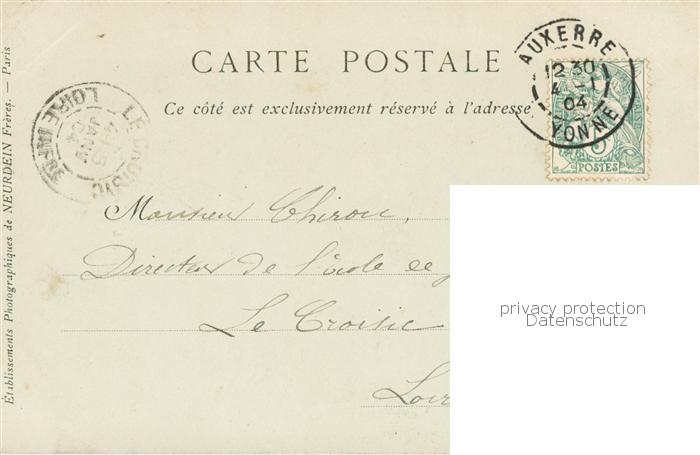 CARTE POSTALE
Ce côté est exclusivement réservé à l'adresse
AUXERRE
12 30
4 -1
04
YONNE
5
POSTES
LE CROISIC
JANV
04
LOIRE INF
Monsieur Chiron,
Directeur de l'école
Le Croisic
Loir
Établissements Photographiques de NEURDEIN Frères. — Paris
privacy protection
Datenschutz